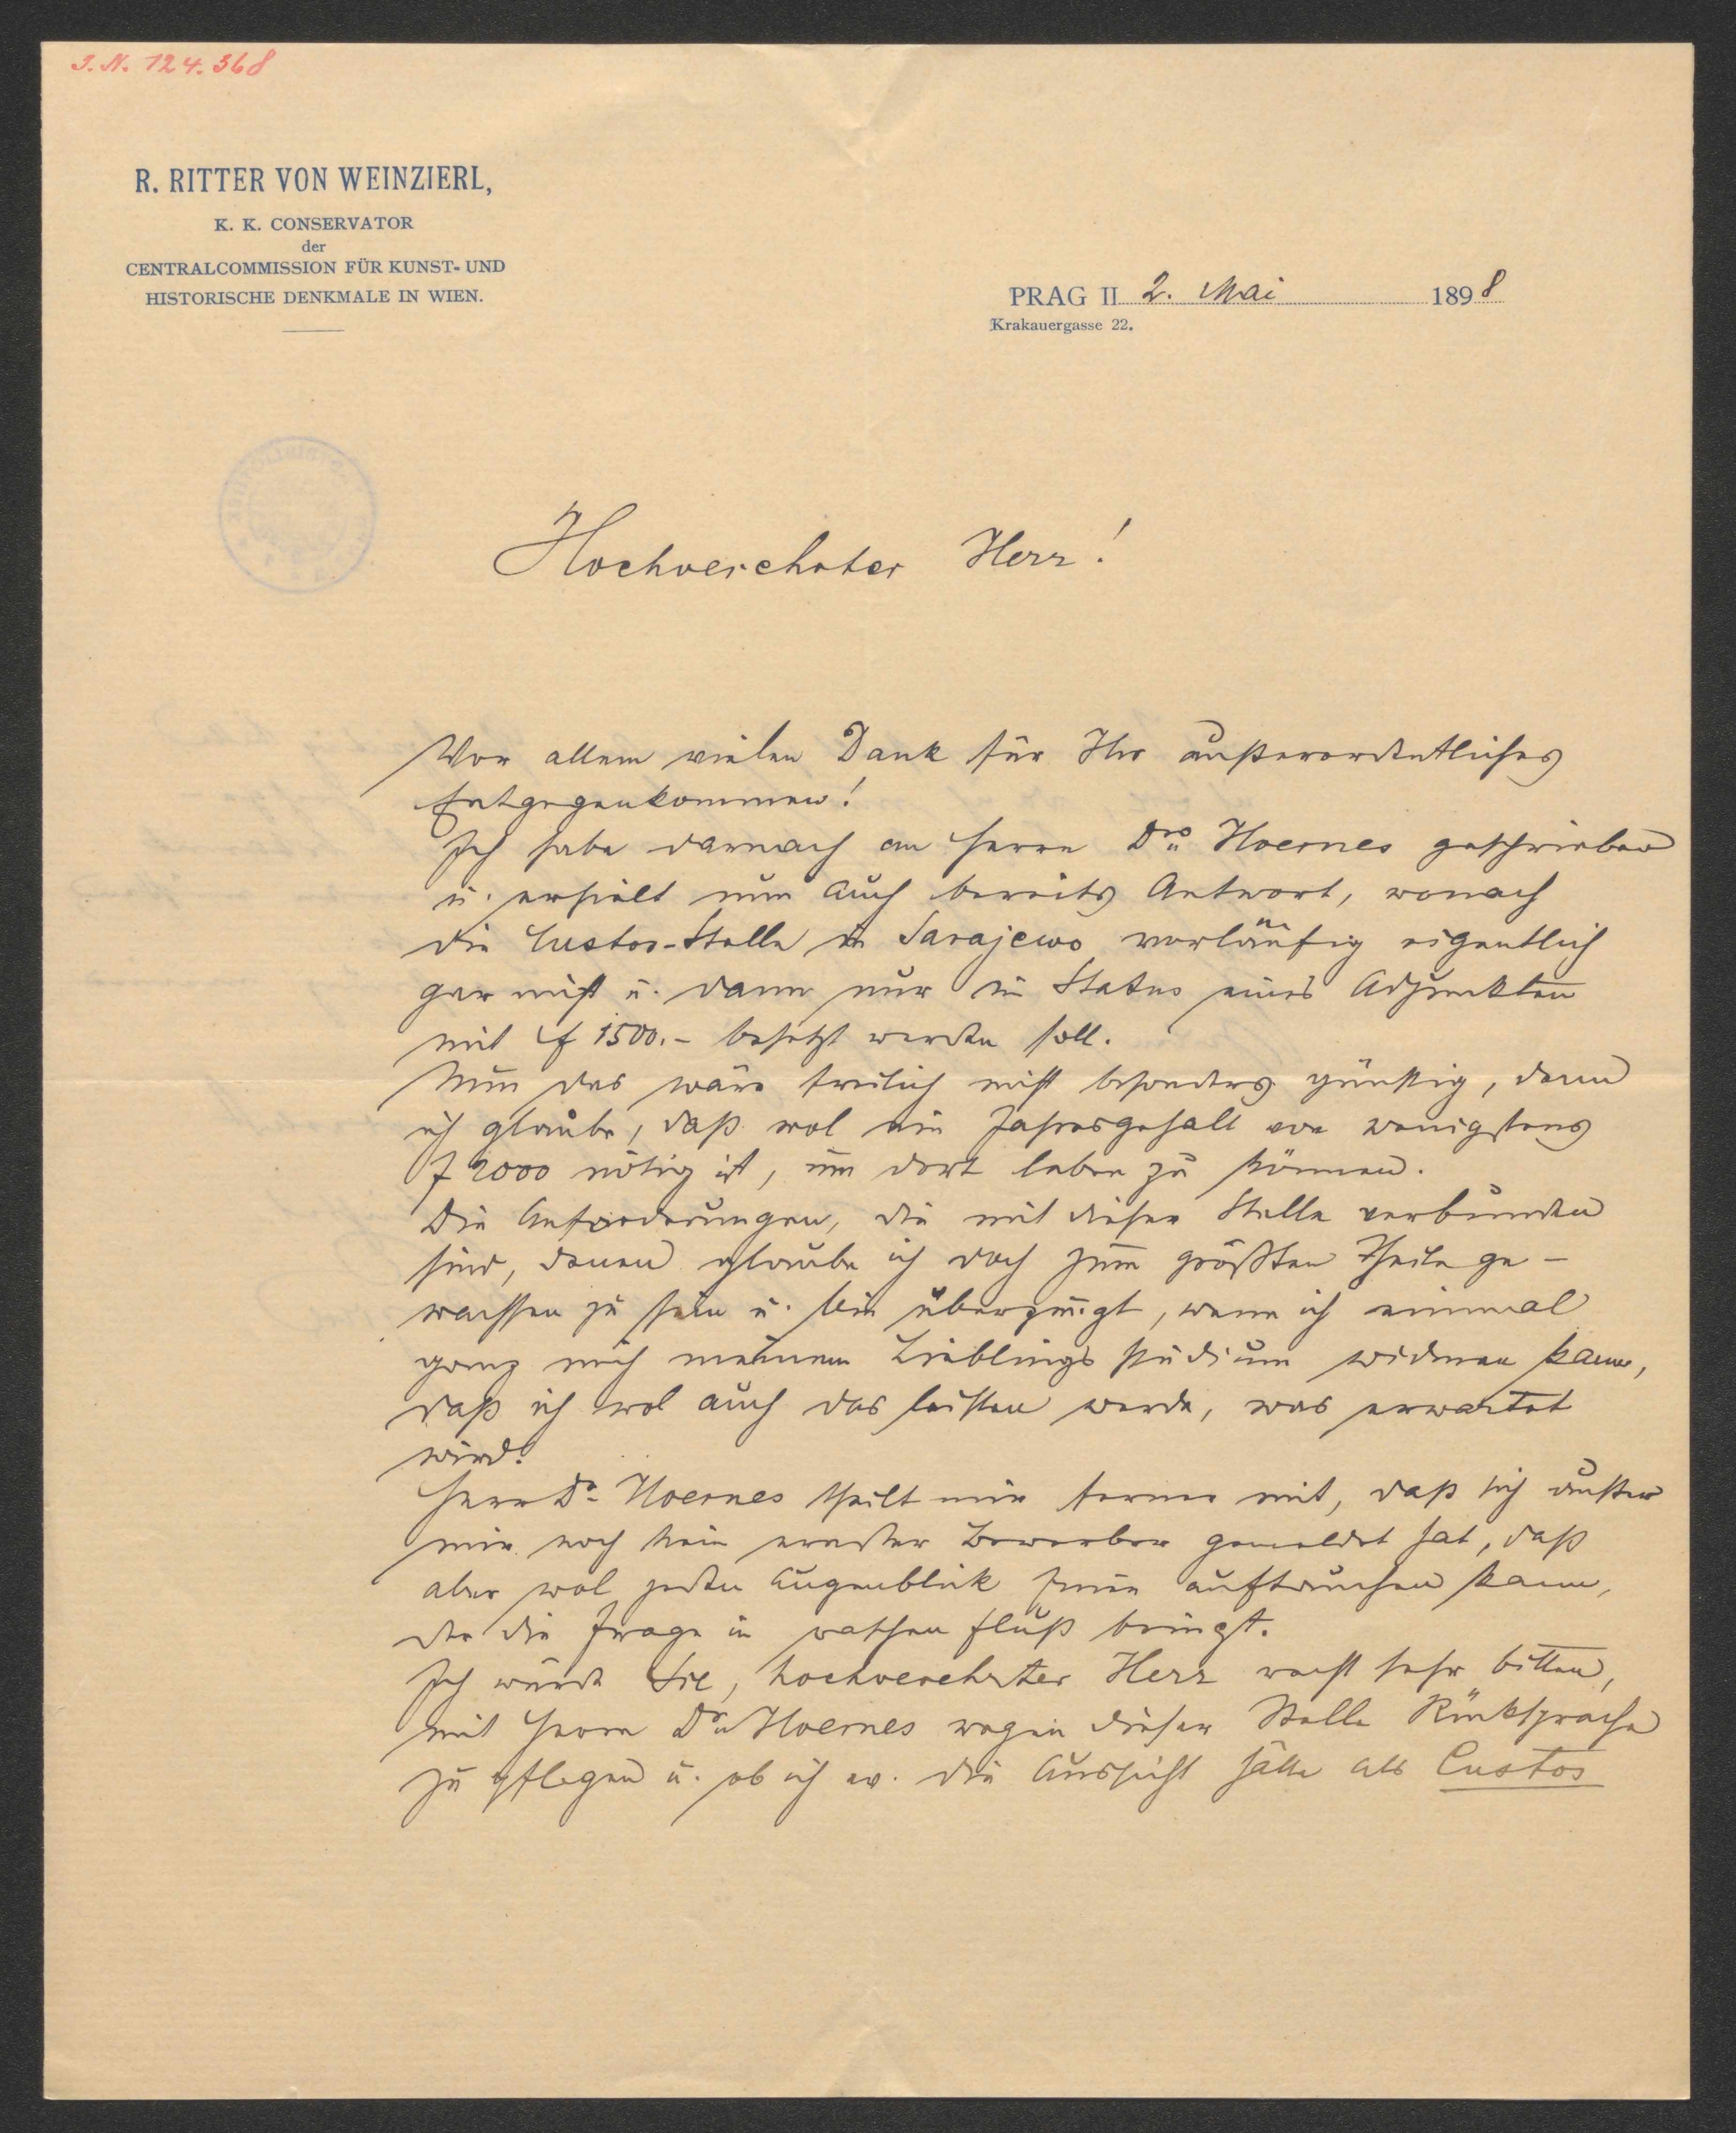 J. N. 124.368
R. RITTER VON WEINZIERL,
K. K. CONSERVATOR
der
CENTRALCOMMISSION FÜR KUNST- UND
HISTORISCHE DENKMALE IN WIEN.
PRAG II 2. Mai 1898
Krakauergasse 22.
Hochverehrter Herr!
Vor allem vielen Dank für Ihr außerordentliches
Entgegenkommen!
Ich habe darnach an Herrn Dr. Hoernes geschrieben
u. erhielt nun auch bereits Antwort, wonach
die Custos-Stelle in Sarajewo vorläufig eigentlich
gar nicht u. dann nur im Status eines Adjunkten
mit f 1500.- besetzt werden soll.
Nun das wäre freilich nicht besonders günstig, denn
ich glaube, daß wol ein Jahresgehalt von wenigstens
f 2000 nötig ist, um dort leben zu können.
Die Anforderungen, die mit dieser Stelle verbunden
sind, denen glaube ich doch zum größten Theile ge-
wachsen zu sein u. bin überzeugt, wenn ich einmal
ganz mich meinem Lieblingsstudium widmen kann,
daß ich wol auch das leisten werde, was erwartet
wird.
Herr Dr. Hoernes theilt mir ferner mit, daß sich außer
mir noch kein ernster Bewerber gemeldet hat, daß
aber wol jeden Augenblick jemand auftauchen kann,
der die Frage in raschen Fluß bringt.
Ich würde Sie, hochverehrter Herr recht sehr bitten,
mit Herrn Dr. Hoernes wegen dieser Stelle Rücksprache
zu pflegen u. ob ich ev. die Aussicht hätte als Custos